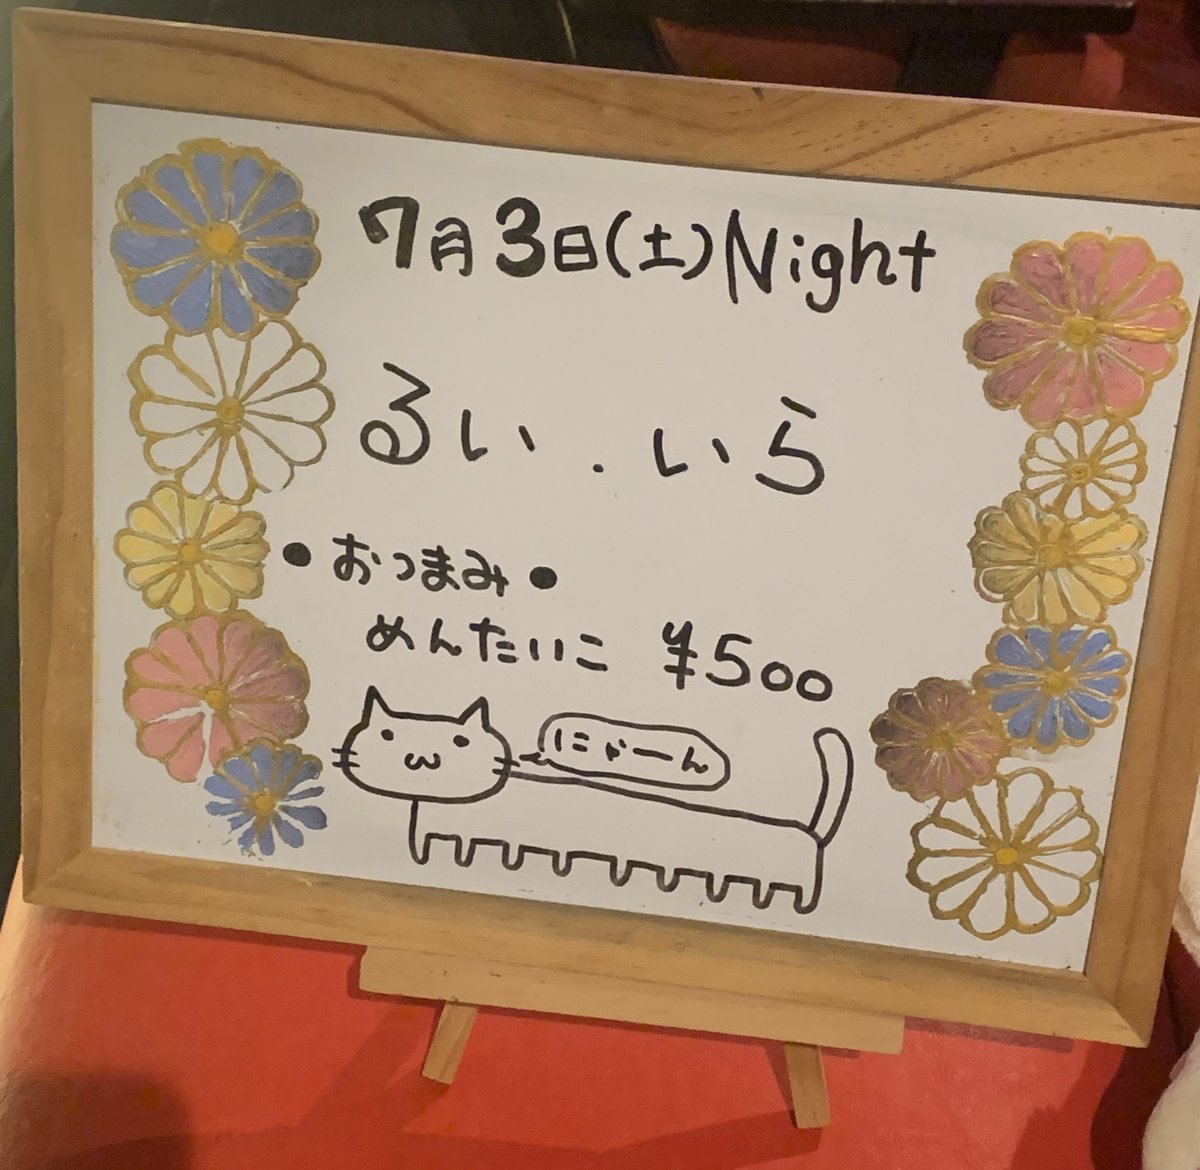 7月3日(土)Night
るい.いら
●おつまみ●
めんたいこ ¥500
にゃーん